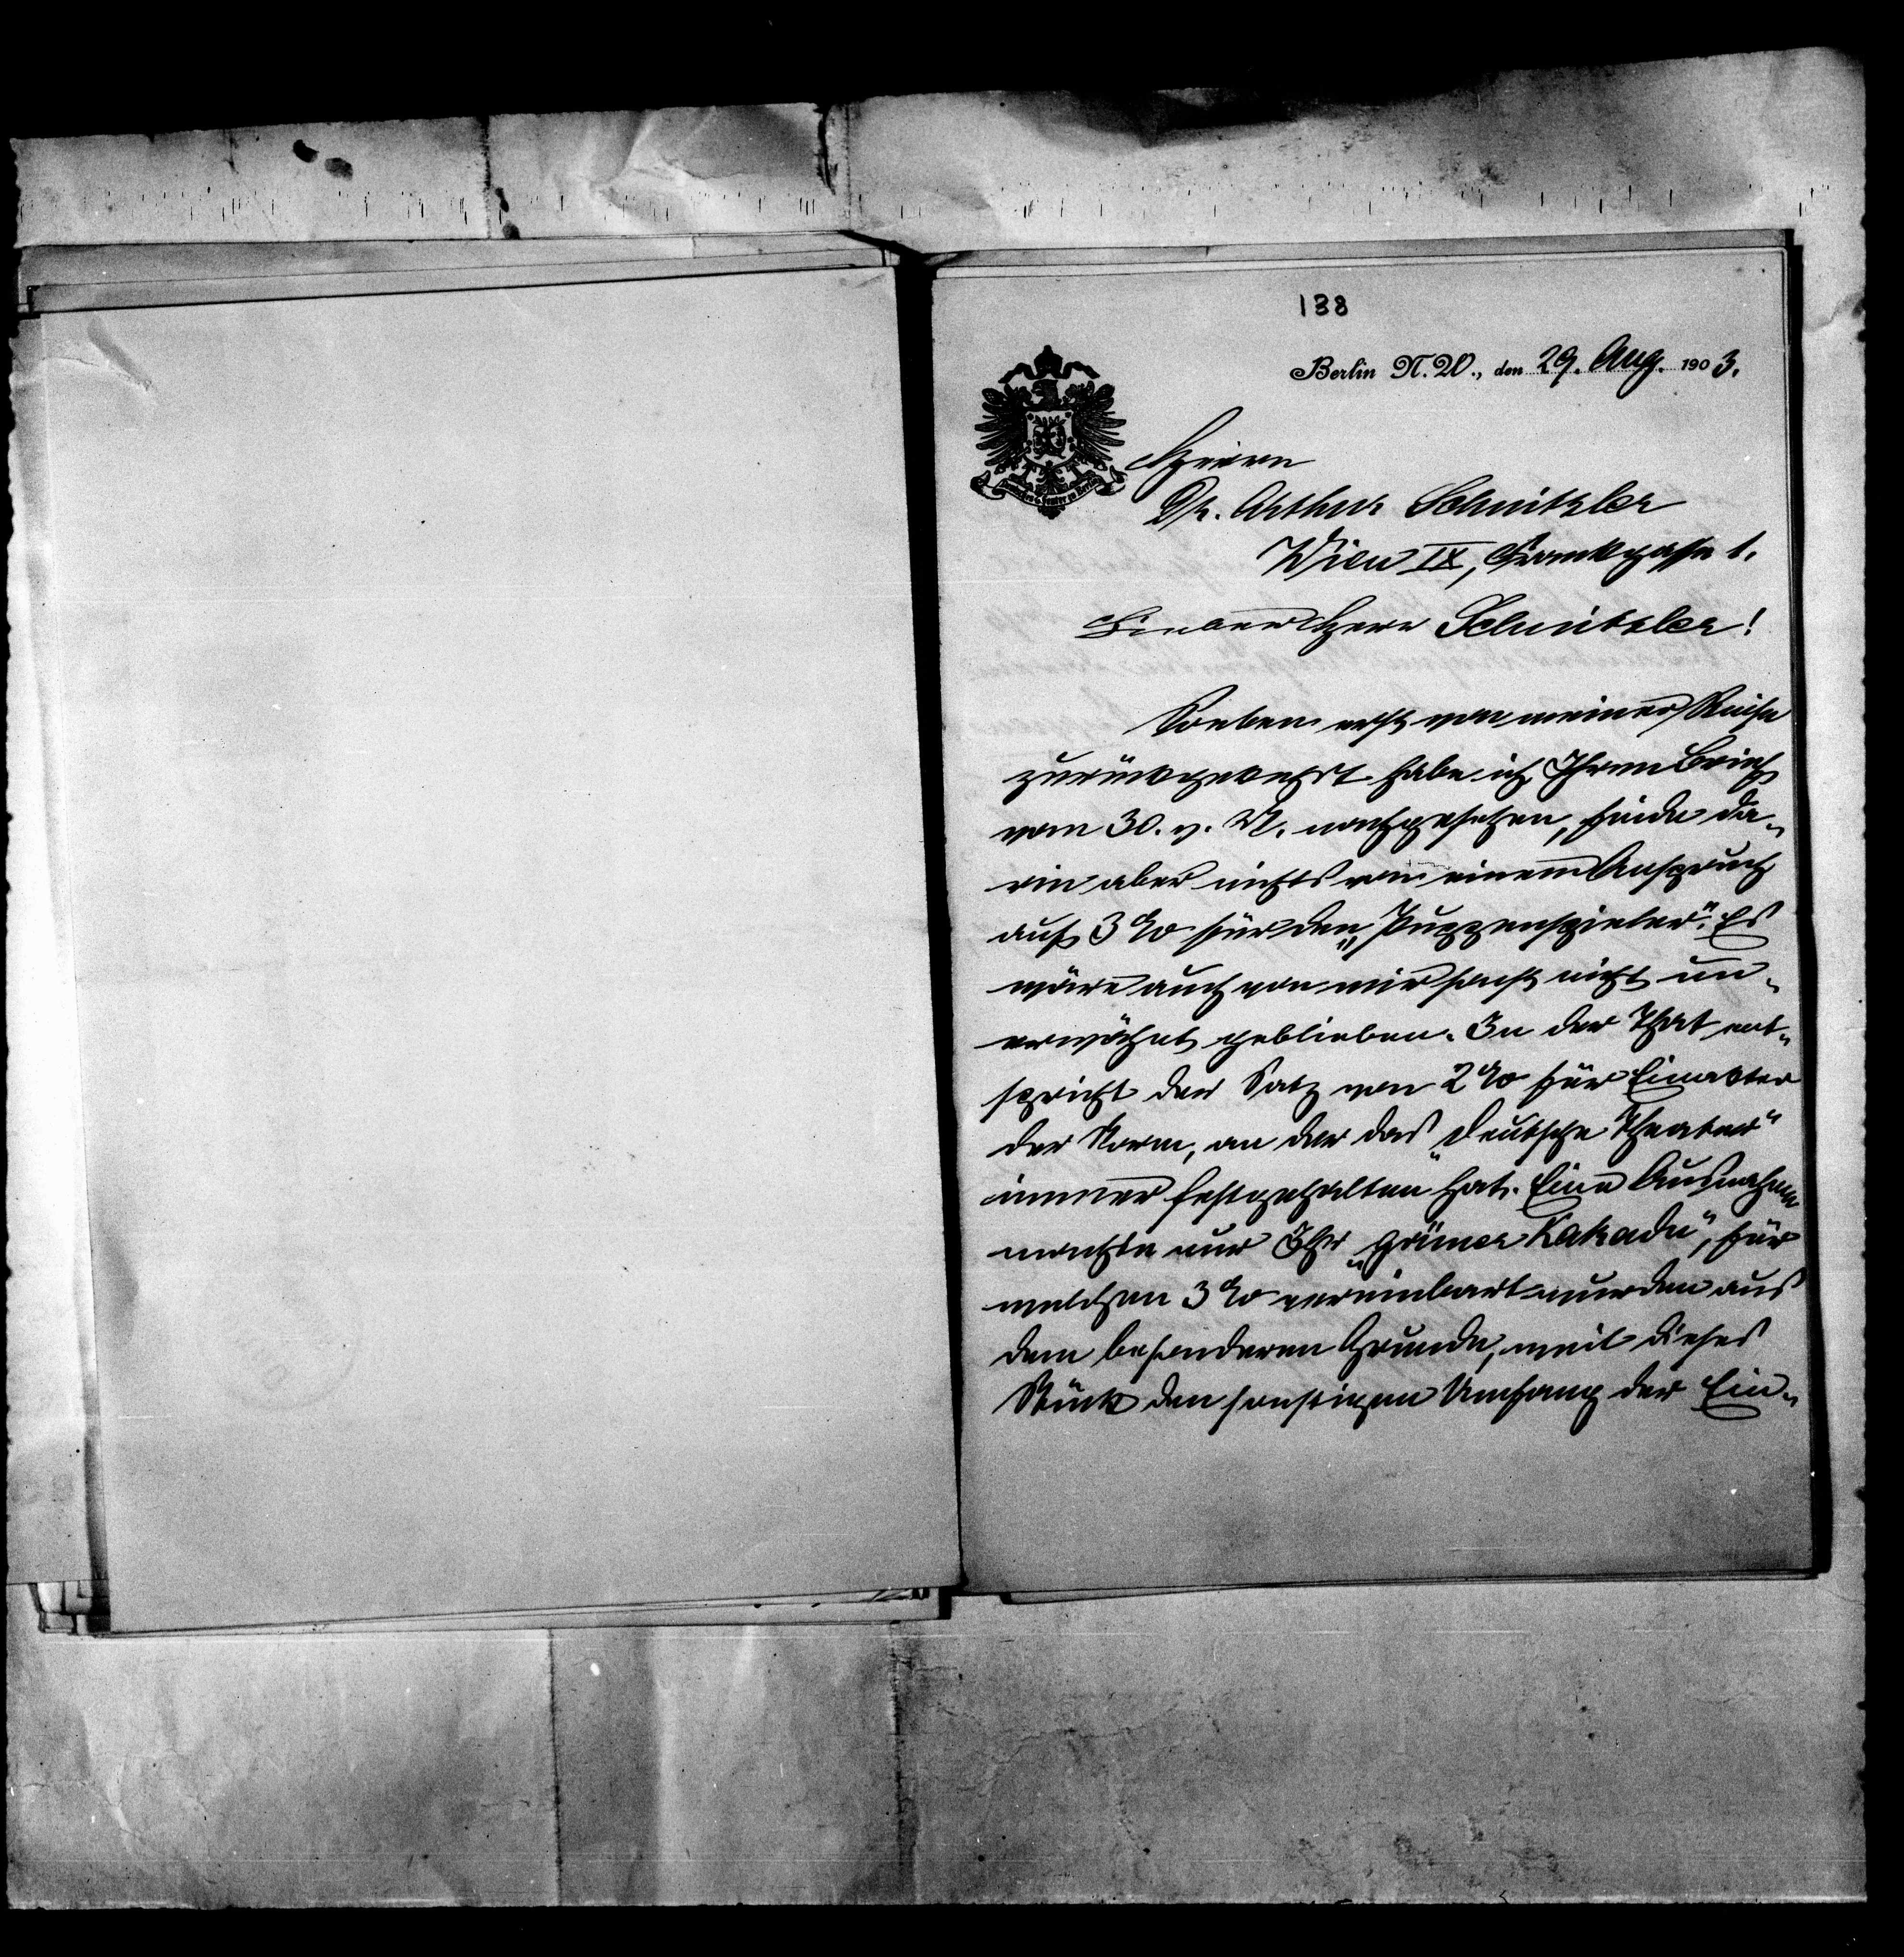 138
Berlin N.W., den 29. Aug. 1903.
Deutsches Theater zu Berlin
Herrn
Dr. Arthur Schnitzler
Wien IX, Frankgasse 1.
Lieber Herr Schnitzler!
Soeben erst von meiner Reise
zurückgekehrt habe ich Ihren Brief
vom 30. v. M. nachgesehen, finde da-
rin aber nichts von einem Anspruch
auf 3% für den „Puppenspieler“. Es
wäre auch von mir sonst nicht un-
erwähnt geblieben. In der That ent-
spricht der Satz von 2% für Einakter
der Norm, an der das „Deutsche Theater“
immer festgehalten hat. Eine Ausnahme
machte nur Ihr „grüner Kakadu“, für
welchen 3% vereinbart wurden aus
dem besonderen Grunde, weil dieses
Stück den sonstigen Umfang der Ein-